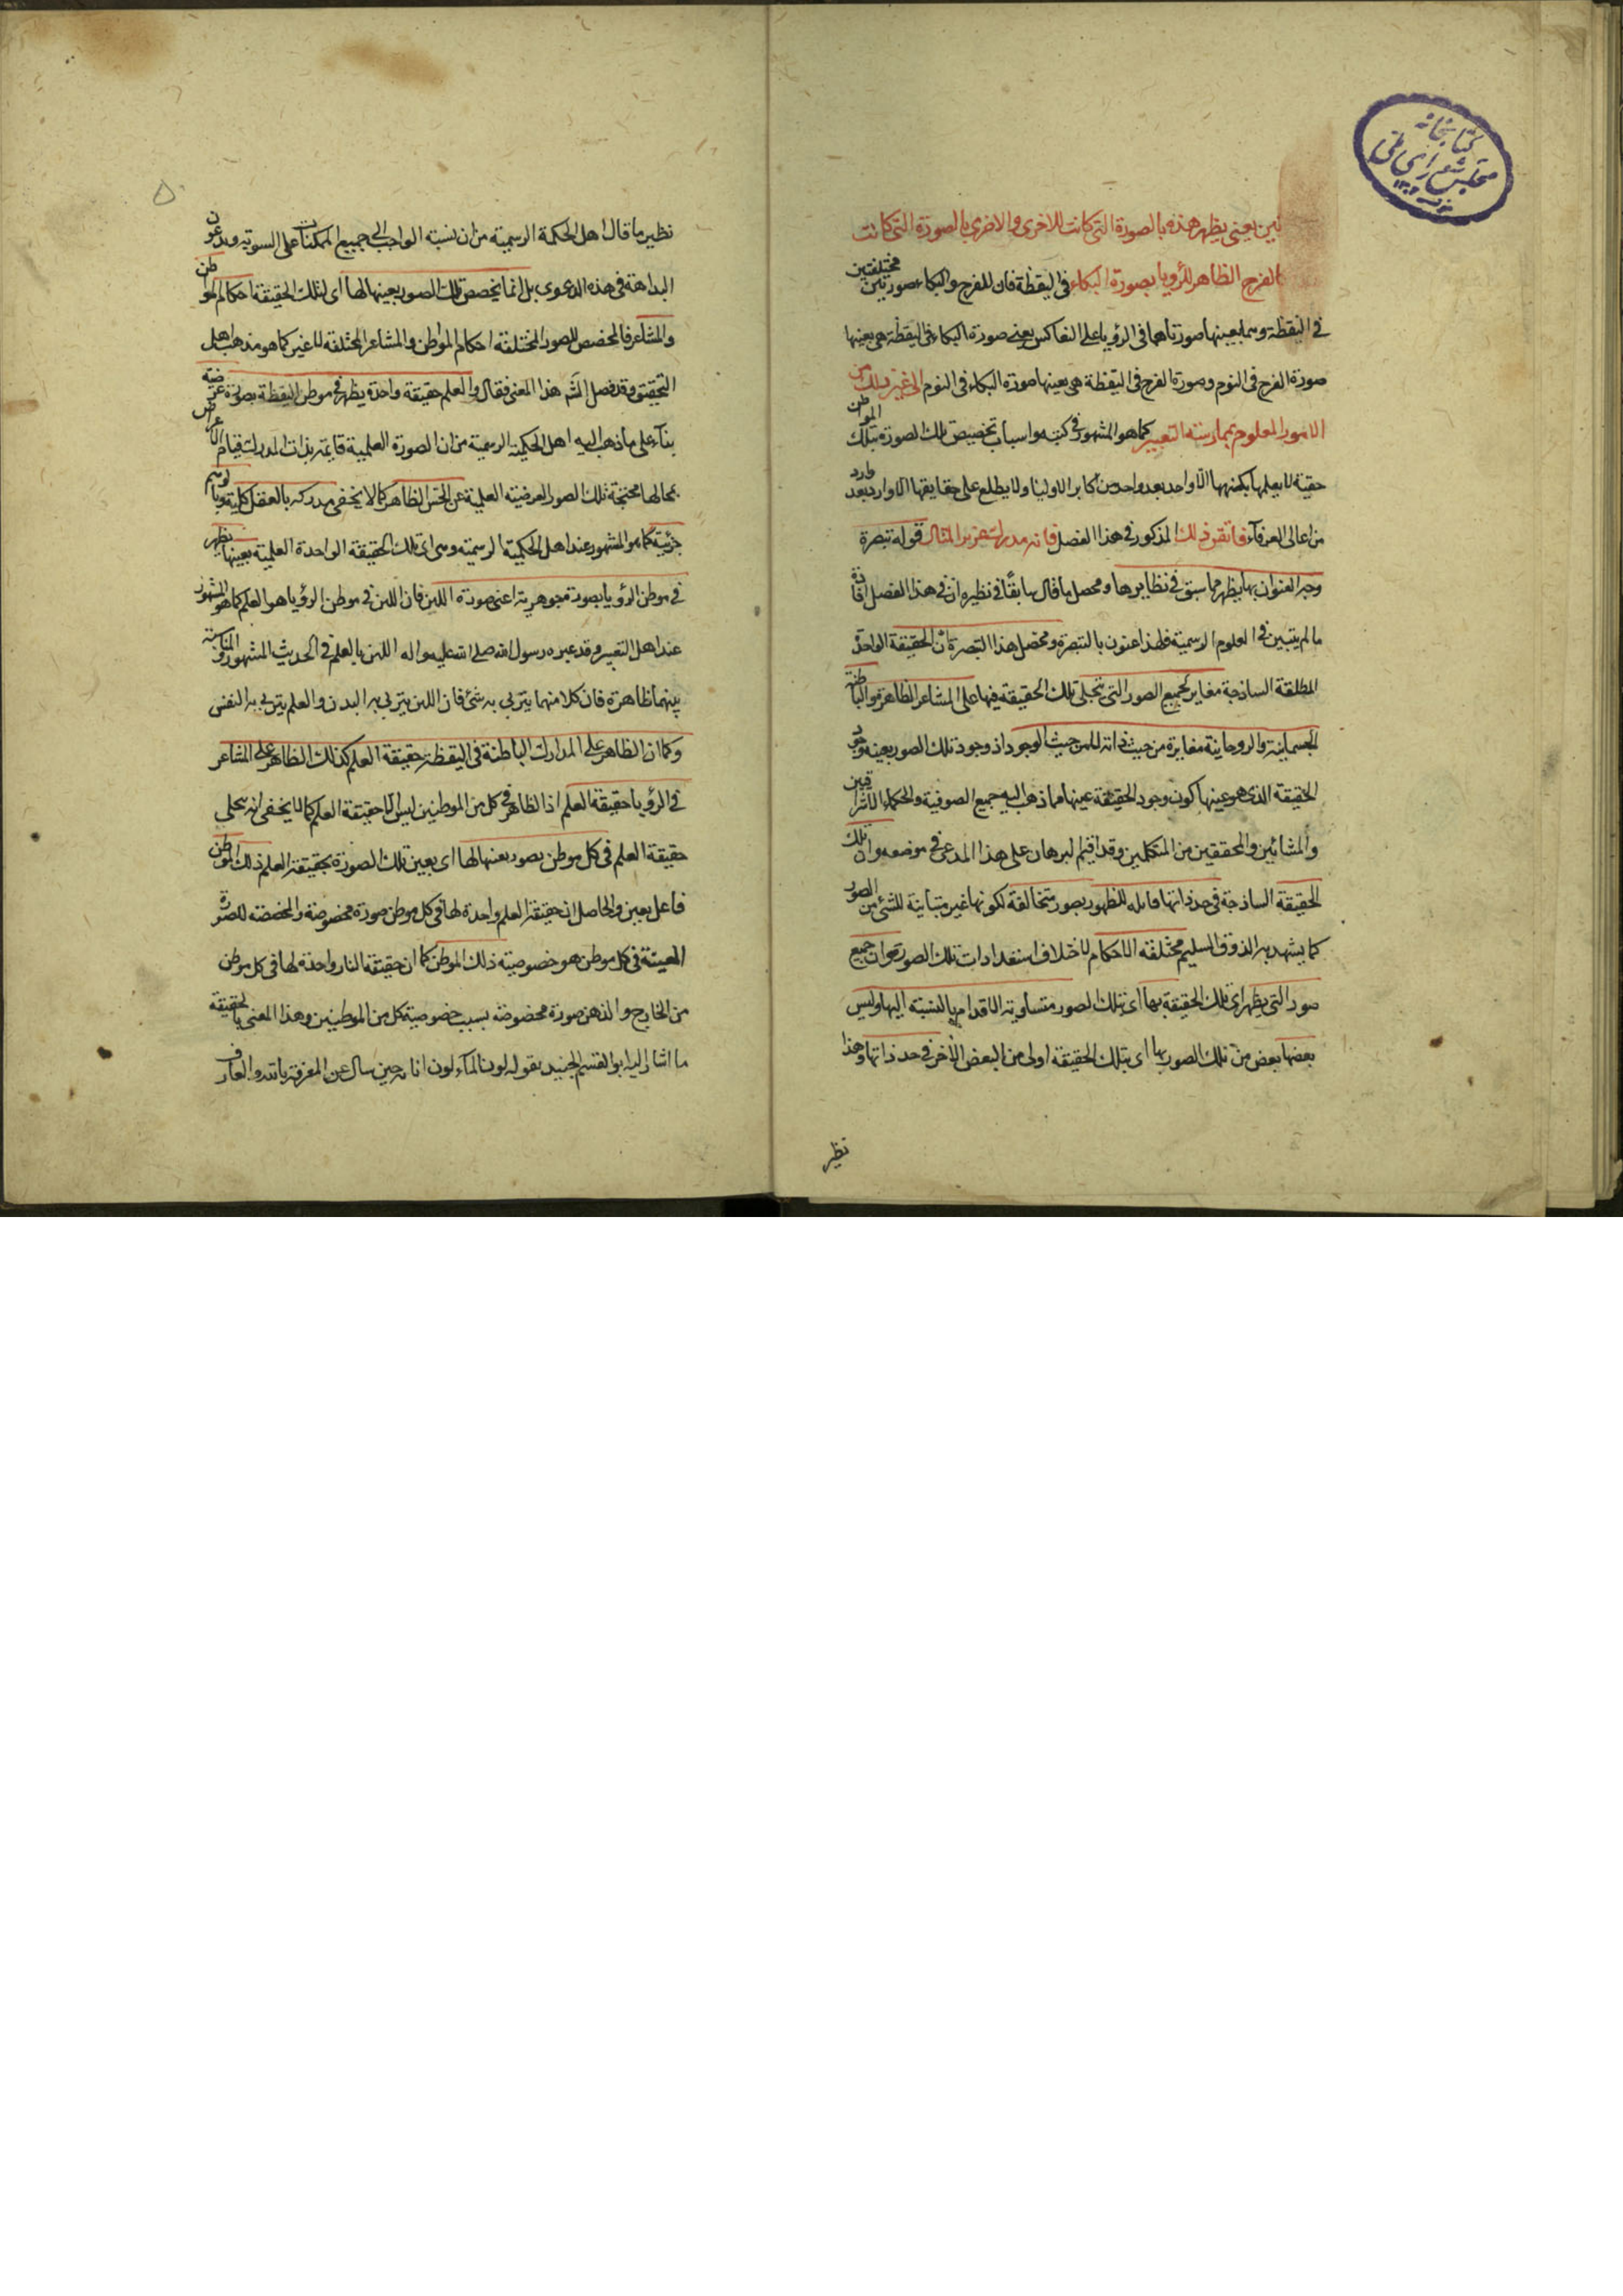 كتابخانه
مجلس شورای ملی
ئين يعنى يظهر هذه بالصورة التى كانت للاخرى والاخرى بالصورة التى كانت
كالفرح الظاهر للرؤيا بصورة البكاء فى اليقظة فان للفرح والبكاء صورتين مختلفتين
فى اليقظة وهما بعينها صورتاهما فى الرؤيا على التعاكس يعنى صورة البكاء فى اليقظة هى بعينها
صورة الفرح فى النوم وصورة الفرح فى اليقظة هى بعينها صورة البكاء فى النوم الى غير ذلك من
الامور المعلوم بممارسته التعبير كما هو المشهور فى كتبه واسباب تخصيص تلك الصورة بتلك المواطن
خفية لا يعلمها بكنهها الا واحد بعد واحد من اكابر الاوليا ولا يطلع على حقايقها الا وارد بعد وارد
من اعالى العرفآء فاتقن ذلك المذكور فى هذا الفصل فانه مدرك عزيز المثال قوله تبصرة
وجه العنوان بها يظهر مما سبق فى نظايرها ومحصل ما قال سابقا فى نظيره ان فى هذا الفصل افادة
ما لم يتبين فى العلوم الرسمية فلهذا عنون بالتبصرة ومحصل هذا التبصرة ان الحقيقة الواحدة
المطلقة الساذجة مغاير لجميع الصور التى تتجلى تلك الحقيقة فيها على المشاعر الظاهرة والباطنة
الجسمانية والروحانية مغايرة من حيث ذاته لا من حيث الوجود اذ وجود تلك الصور بعينه وجود
الحقيقة الذى هو عينها كون وجود الحقيقة عينها مما ذهب اليه جميع الصوفية والحكماء الاشراقيين
والمشائين والمحققين من المتكلمين وقد اقيم البرهان على هذا المدعى فى موضعه وان تلك
الحقيقة الساذجة فى حد ذاتها قابله للظهور بصور متخالفة لكونها غير متباينة للشئ من الصور
كما يشهد به الذوق السليم مختلفة الاحكام لاختلاف استعدادات تلك الصور وان جميع
صور التى يظهر اى تلك الحقيقة بها اى بتلك الصور متساوية الاقدام بالنسبة اليها وليس
بعضها بعض من تلك الصور بها اى بتلك الحقيقة اولى من البعض الآخر فى حد ذاتها وهذا
نظير
نظير ما قال اهل الحكمة الرسمية من ان نسبة الواجب الى جميع الممكنات على السوية ويدعون
البداهة فى هذه الدعوى بل انما تخصص تلك الصور بعينها لها اى لتلك الحقيقة احكام المواطن
والمشاعر فالمخصص للصور المختلفة احكام المواطن والمشاعر المختلفة لا غير كما هو مذهب اهل
التحقيق وقد فصل الش هذا المعنى فقال والعلم حقيقة واحدة يظهر فى موطن اليقظة بصورة عرضية
بنآء على ما ذهب اليه اهل الحكمية الرسمية من ان الصورة العلمية قايمة بذات المدرك قيام الاعراض
بمحالها محتجبة تلك الصور العرضية العلمية عن الحس الظاهر كما لا يخفى مدركه بالعقل كلية وبالوهم
جزئية كما هو المشهور عند اهل الحكمية الرسمية وهى اى تلك الحقيقة الواحدة العلمية بعينها يظهر
فى موطن الرؤيا بصورة جوهرية اعنى صورة اللبن فان اللبن فى موطن الرؤيا هو العلم كما هو المشهور
عند اهل التعبير وقد عبره رسول الله صلى الله عليه واله اللبن بالعلم فى الحديث المشهور والمناسبة
بينهما ظاهرة فان كلا منهما يتربى به شئ فان اللبن يتربى به البدن والعلم يتربى به النفس
وكما ان الظاهر على المدارك الباطنة فى اليقظة حقيقة العلم كذلك الظاهر على المشاعر
فى الرؤيا حقيقة العلم اذ الظاهر فى كل من الموطنين ليس الا حقيقة العلم كما لا يخفى انه تجلى
حقيقة العلم فى كل موطن بصور بعينها لها اى بعين تلك الصورة بحقيقة العلم ذلك الموطن
فاعل يعين والحاصل ان حقيقة العلم واحدة لها فى كل موطن صورة مخصوصة والمخصصة للصورة
المعينة فى كل موطن هو خصوصية ذلك الموطن كما ان حقيقة النار واحدة لها فى كل موطن
من الخارج والذهن صورة مخصوصة بسبب خصوصية كل من الموطنين وهذا المعنى بالحقيقة
ما اشار اليه ابو القسم الجنيد بقوله لون المآء لون انائه حين سال عن المعرفة بالله والعارف